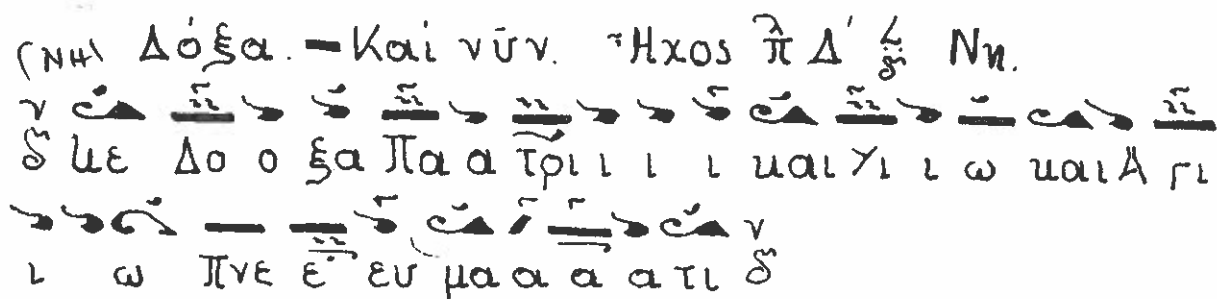 (ΝΗ) Δόξα. – Καί νῦν. Ἦχος πλ Δ΄ Νη.
κε Δο ο ξα Πα α τρι ι ι ι και Υι ι ω και Α γι
ι ω πνε ε ευ μα α α α τι